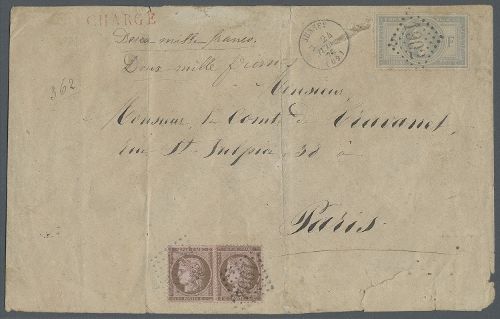 CHARGÉ
Deux mille francs,
Deux mille francs
JUSSEY
24
362
F
Monsieur,
Monsieur, le Comte de
rue St Sulpice 38 à
Paris